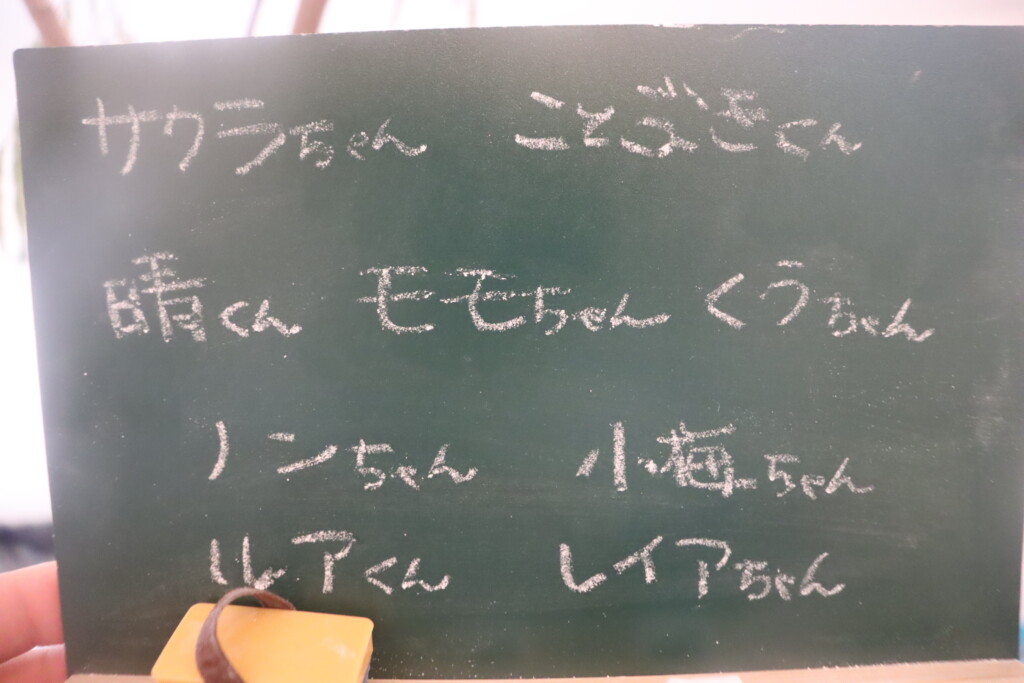 サクラちゃん ことぶきくん
晴くん モモちゃん くうちゃん
ノンちゃん 小梅ちゃん
ルアくん レイアちゃん